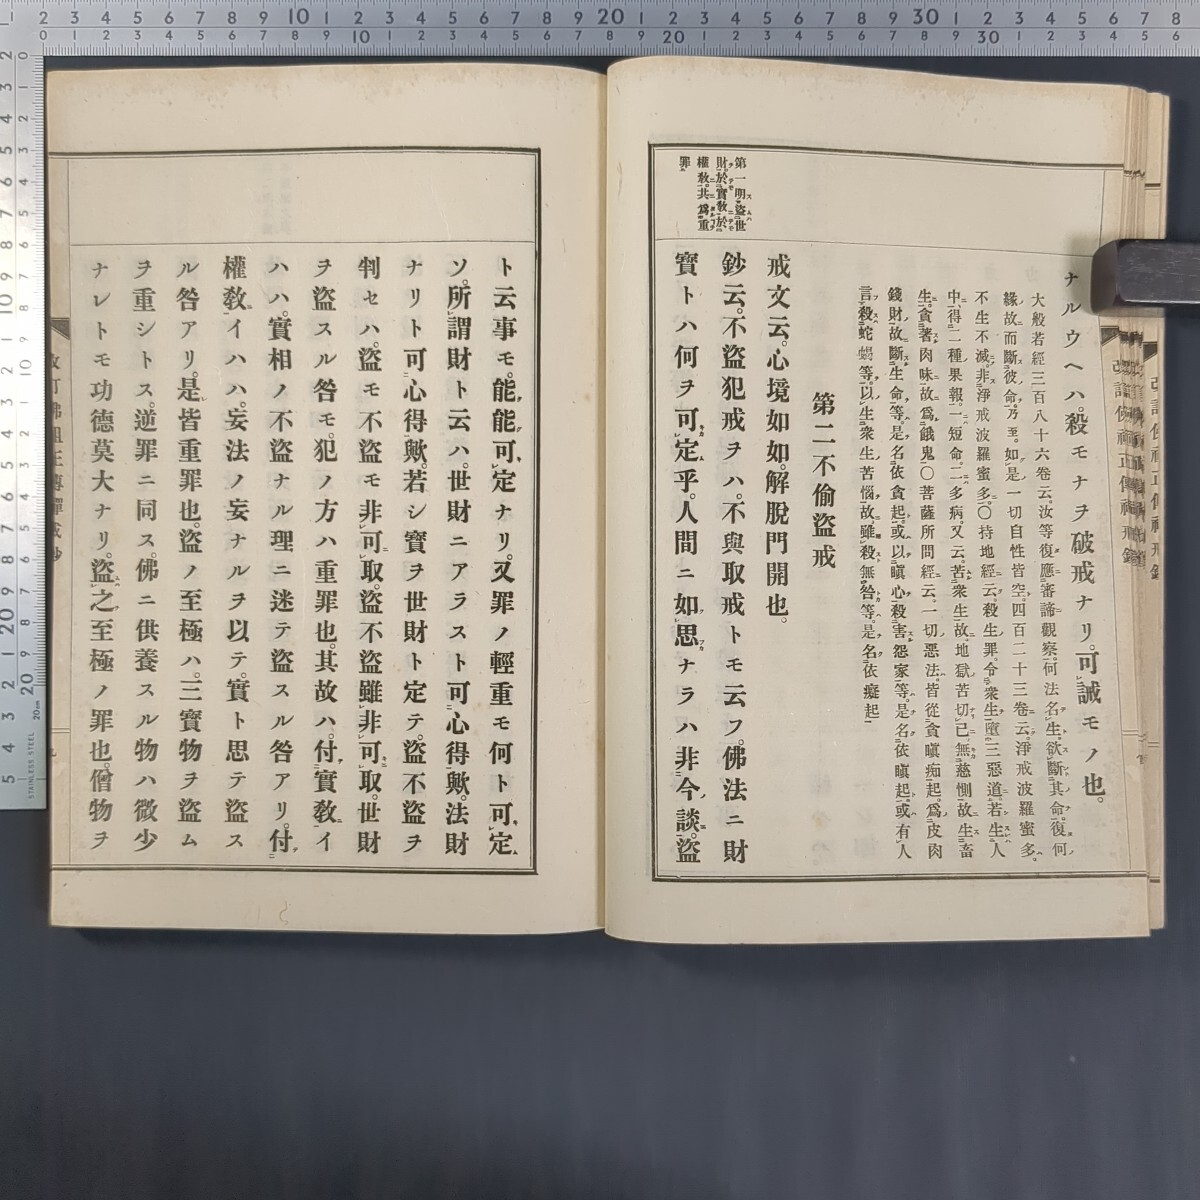 ナルウヘハ。殺モナヲ破戒ナリ。可誡モノ也。
大般若經三百八十六卷云。汝等復應審諦觀察。何法名生。欲斷其命。復何
緣故而斷彼命。乃至。如是一切自性皆空。四百二十三卷云。淨戒波羅蜜多。
不生不滅。非淨戒波羅蜜多。〇持地經云。殺生罪。令衆生墮三惡道。若生人
中。得二種果報。一短命。二多病。又云。苦衆生故。地獄苦切己。無慈惻故。生畜
生。貪著肉味故。爲餓鬼〇菩薩所問經云。一切惡法。皆從貪瞋痴起。爲皮肉
錢財故。斷生命等。是名依貪起。或以瞋心殺害怨家等。是名依瞋起。或有人
言。殺蛇蝎等。以生衆生苦惱故。雖殺無咎等。是名依癡起
第二不偷盜戒
戒文云。心境如如。解脫門開也。
第一明盜世
財。於實敎於
權敎。共爲重
罪
鈔云。不盜犯戒ヲハ。不與取戒トモ云フ。佛法ニ財
寶トハ何ヲ可定乎。人間ニ如思ナラハ非今談。盜
ト云事モ。能能可定ナリ。又罪ノ輕重モ何ト可定
ソ。所謂財ト云ハ。世財ニアラスト可心得歟。法財
ナリト可心得歟。若シ寶ヲ世財ト定テ。盜不盜ヲ
判セハ。盜モ不盜モ非可取。盜不盜雖非可取。世財
ヲ盜スル咎モ。犯ノ方ハ重罪也。其故ハ。付實敎イ
ハハ。實相ノ不盜ナル理ニ迷テ盜スル咎アリ。付
權敎イハハ。妄法ノ妄ナルヲ以テ。實ト思テ盜ス
ル咎アリ。是皆重罪也。盜ノ至極ハ。三寶物ヲ盜ム
ヲ重シトス。逆罪ニ同ス。佛ニ供養スル物ハ微少
ナレトモ功德莫大ナリ。盜之至極ノ罪也。僧物ヲ